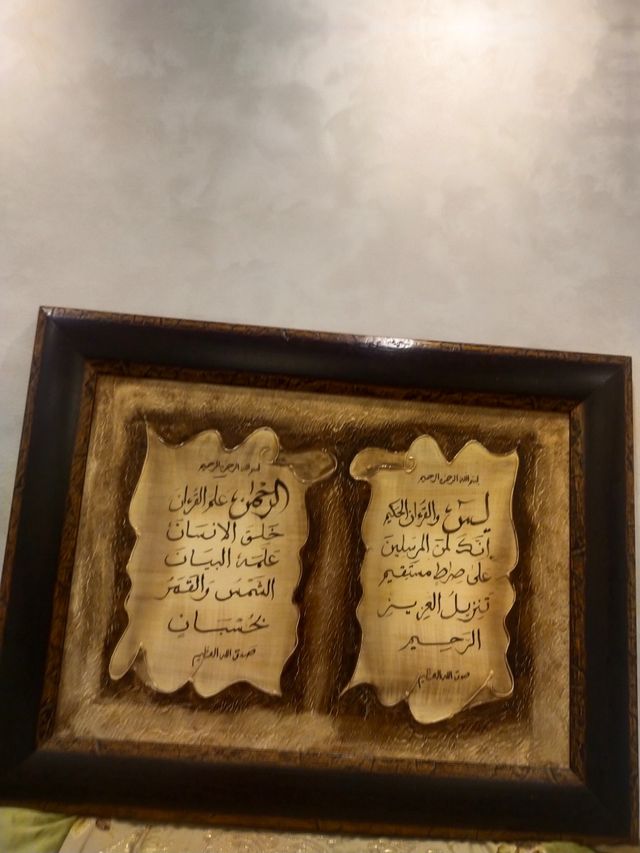 بسم الله الرحمن الرحيم
يس والقرءان الحكيم
إنك لمن المرسلين
على صراط مستقيم
تنزيل العزيز
الرحيم
صدق الله العظيم
بسم الله الرحمن الرحيم
الرحمن علم القرءان
خلق الانسان
علمه البيان
الشمس والقمر
بحسبان
صدق الله العظيم